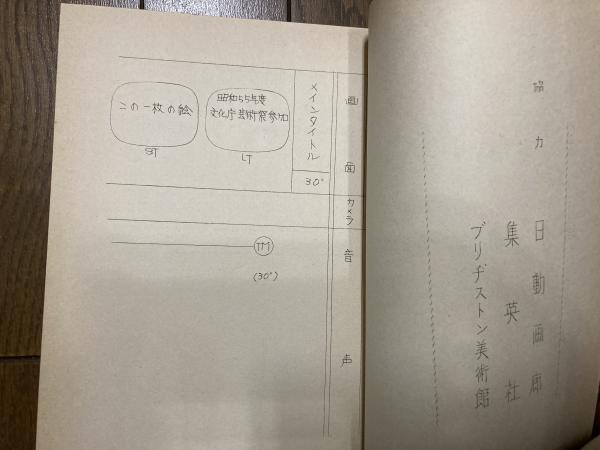 協力
日動画廊
集英社
ブリヂストン美術館
画面
カメラ
音声
メインタイトル
30"
昭和55年度
文化庁芸術祭参加
LT
この一枚の絵
ST
TM
(30")